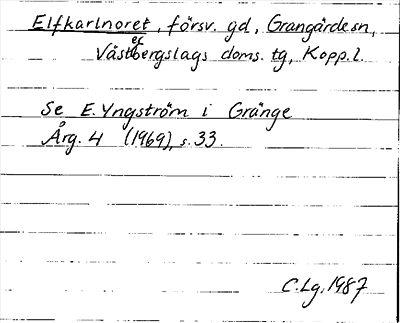 Elfkarlnoret, försv. gd, Grangärde sn,
Västerbergslags doms. tg, Kopp. l.
Se E. Yngström i Gränge
Årg. 4 (1969), s. 33.
C. Lg, 1987